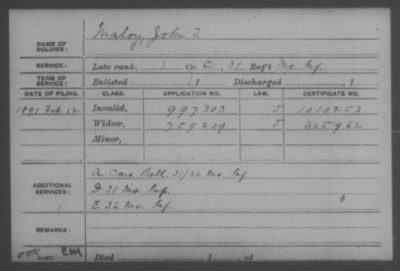 NAME OF SOLDIER: Maloy, John T.
SERVICE: Late rank, Co. C, 31 Reg't Mo. Inf.
TERM OF SERVICE: Enlisted , 1 Discharged , 1
DATE OF FILING. CLASS. APPLICATION NO. LAW. CERTIFICATE NO.
1891 Feb. 12 Invalid, 997303 J 1010253
Widow, 759209 J 605962
Minor,
ADDITIONAL SERVICES: A Cons. Batt. 31/32 Mo. Inf
D 31 Mo. Inf.
E 32 Mo. Inf.
REMARKS:
CM
Died , 1 , at